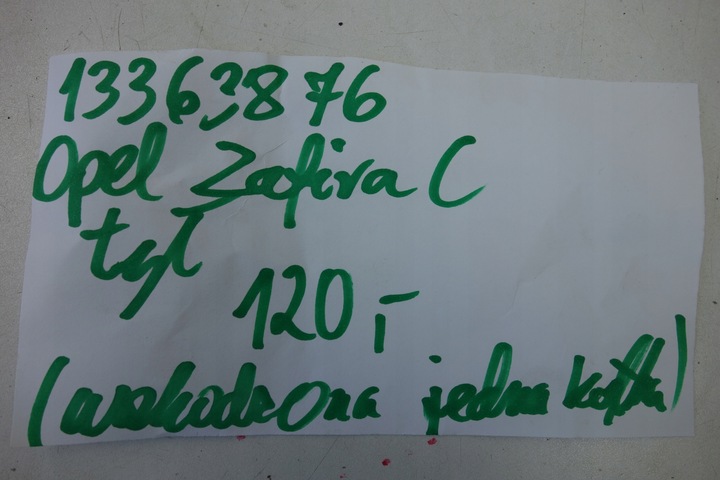 13363876
Opel Zafira C
tył
120,-
(uszkodzona jedna kostka)